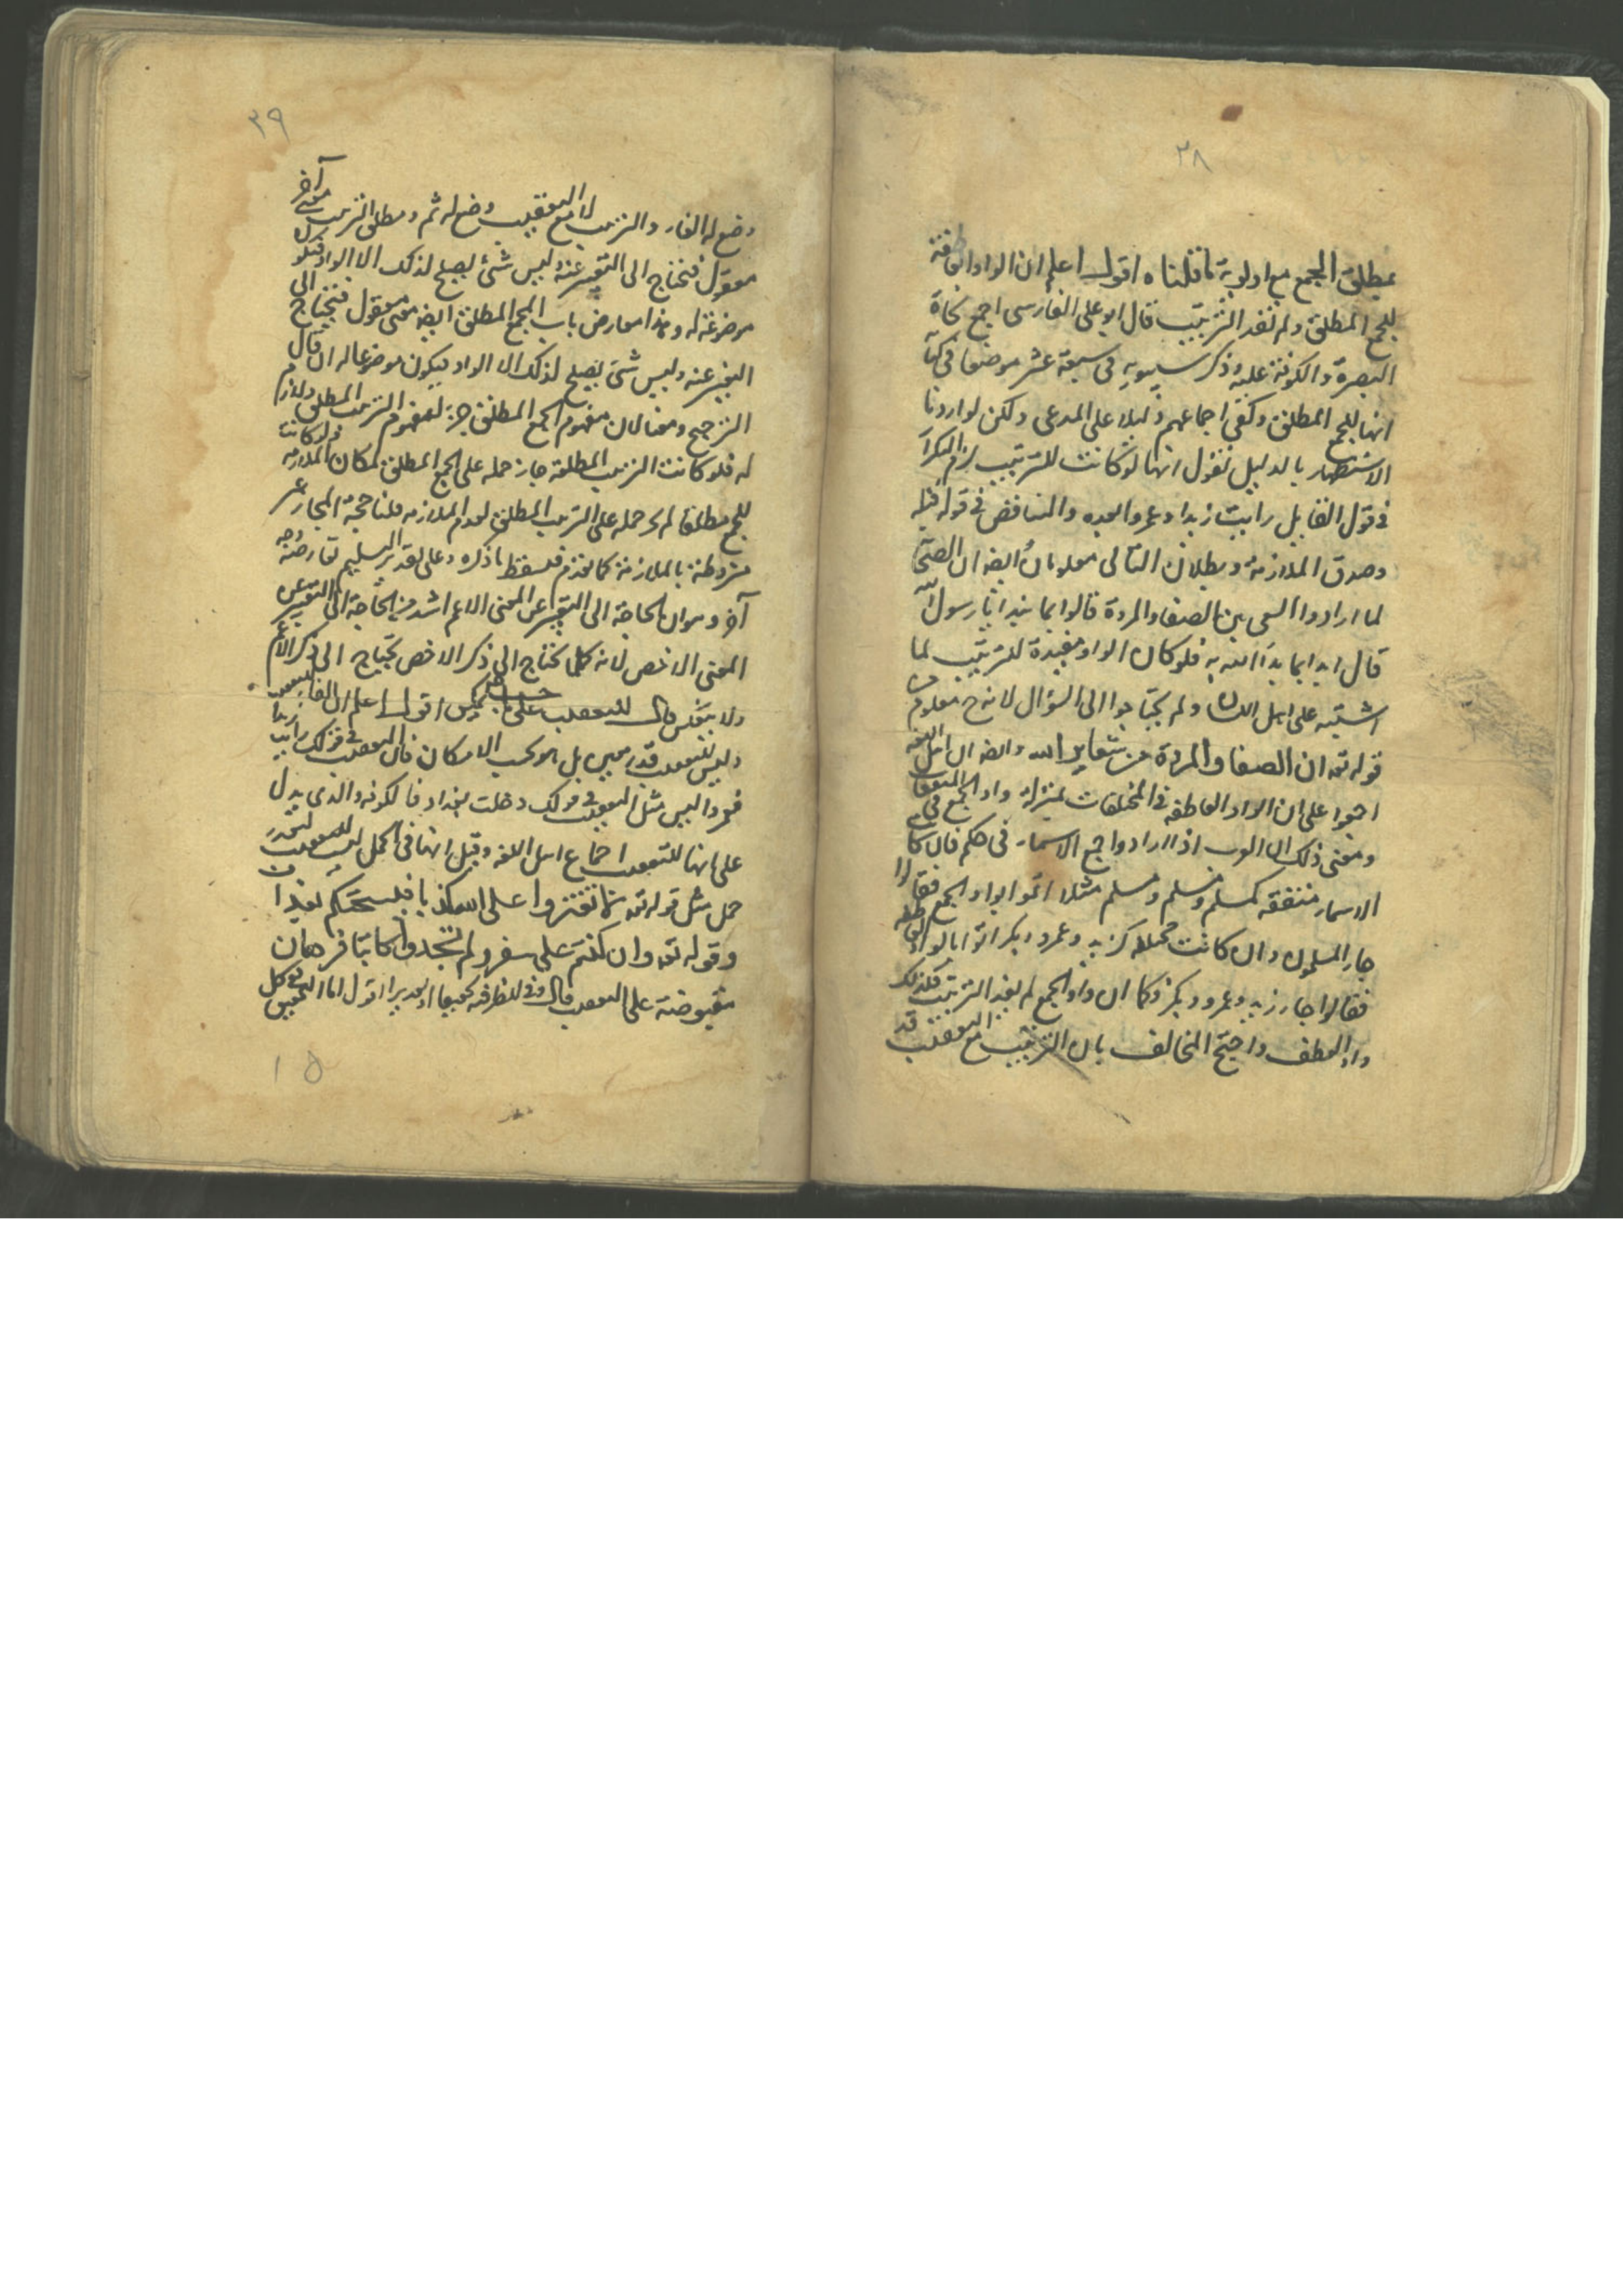 ٣٨
بمطلق الجمع مع اولوية ما قلناه اقول اعلم ان الواو العاطفة
للجمع المطلق ولم تفد الترتيب قال ابو على الفارسى اجمع نحاة
البصرة والكوفة عليه وذكر سيبويه فى سبعة عشر موضعا فى كتابه
انها للجمع المطلق وكفى اجماعهم دليلا على المدعى ولكن لو اردنا
الاستظهار بالدليل نقول انها لو كانت للترتيب لزم التكرار
فى قول القايل رايت زيدا وعمروا بعده والتناقض فى قوله قبله
وصدق الملازمة وبطلان التالى معلومان ايضا ان الصحابة
لما ارادوا السعى بين الصفا والمروة قالوا بما نبدا يا رسول الله
قال ابدا بما بدا الله به فلو كان الواو مفيدة للترتيب لما
اشتبه على اهل اللسان ولم يحتاجوا الى السؤال لانه ح معلوم من
قوله تعه ان الصفا والمروة من شعاير الله وايضا ان اهل اللغة
اجمعوا على ان الواو العاطفة فى المختلفات بمنزلة واو الجمع فى المتفقات
ومعنى ذلك ان العرب اذا ارادوا جمع الاسماء فى حكم فان كانت
الاسماء متفقه كمسلم ومسلم ومسلم مثلا اتوا بواو الجمع فقالوا
جاء المسلمون وان كانت مختلفه كزيد وعمرو وبكر اتوا بالواو العاطفه
فقالوا جاء زيد وعمرو وبكر فكما ان واو الجمع لم يفد الترتيب فكذلك
واو العطف واحتج المخالف بان الترتيب مع التعقيب قد
٣٩
وضع له الفاء والترتيب لا مع التعقيب وضع له ثم ومطلق الترتيب معنى آخر
معقول فنحتاج الى التعبير عنه وليس شئ يصلح لذلك الا الواو فتكون
موضوعة له وهذا معارض بان الجمع المطلق ايضا معنى معقول فنحتاج الى
التعبير عنه وليس شئ يصلح لذلك الا الواو فيكون موضوعا له ان قال
الترجيح معنا لان مفهوم الجمع المطلق جزء لمفهوم الترتيب المطلق ولازم
له فلو كانت الترتيب المطلقة جاز حمله على الجمع المطلق لمكان الملازمه ولو كانت
للجمع مطلقا لم يجز حمله على الترتيب المطلق لعدم الملازمه قلنا صحة المجاز غير
مشروطة بالملازمة كما تقدم فسقط ما ذكره وعلى تقدير التسليم نعارضه بوجه
آخر وهو ان الحاجة الى التعبير عن المعنى الاعم اشد من الحاجة الى التعبير عن
المعنى الاخص لانه كلما نحتاج الى ذكر الاخص نحتاج الى ذكر الاعم
ولا ينعكس قال للتعقيب على حسب ما يمكن اقول اعلم ان الفاء للتعقيب
وليس للتعقيب قدر معين بل هو بحسب الامكان فان التعقيب فى قولك رايت زيدا
فعمروا ليس مثل التعقيب فى قولك دخلت بغداد فالكوفه والذى يدل
على انها للتعقيب اجماع اهل اللغه وقيل انها فى الكل ليست للتعقيب لتعذر
حمل مثل قوله تعه لا تفتروا على الله كذبا فيسحتكم بعذاب
وقوله تعه وان كنتم على سفر ولم تجدوا كاتبا فرهان
مقبوضة على التعقيب قال وفى للظرفيه تحقيقا او تقديرا اقول اما التحقيق فى كل
١٥